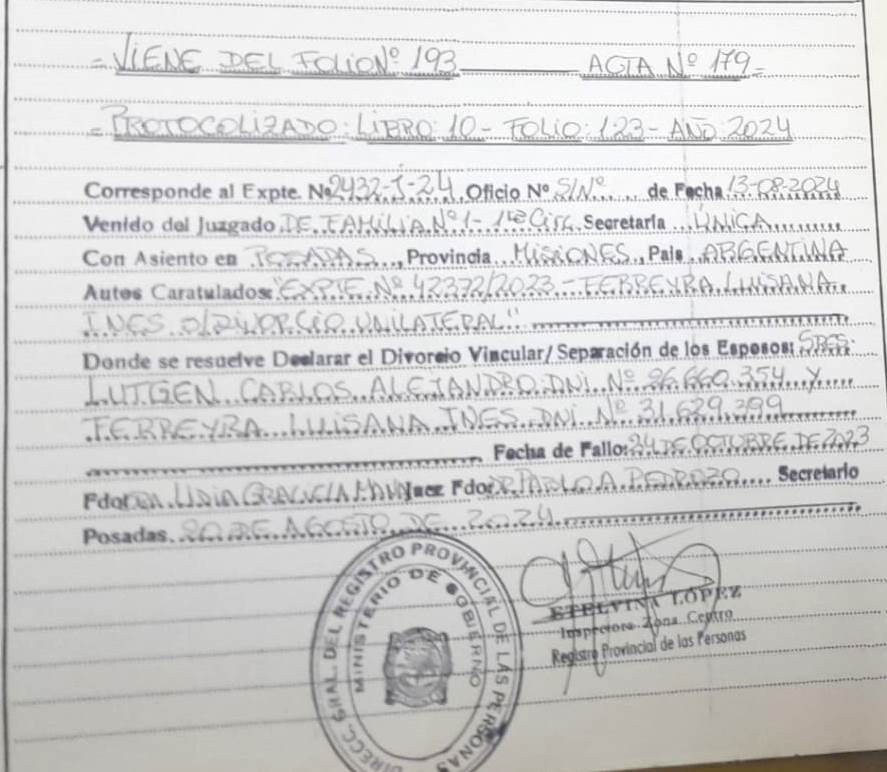 = VIENE DEL FOLIO Nº 193 ACTA Nº 179 =
= PROTOCOLIZADO: LIBRO: 10 - FOLIO: 123 - AÑO: 2024
Corresponde al Expte. Nº 2432-J-24 Oficio Nº S/Nº de Fecha 13-08-2024
Venido del Juzgado DE FAMILIA Nº 1 - 1ra Circ. Secretaría ÚNICA
Con Asiento en POSADAS, Provincia MISIONES, País ARGENTINA
Autos Caratulados: "EXPTE. Nº 42372/2023 - FERREYRA LUISANA
INES S/DIVORCIO UNILATERAL"
Donde se resuelve Declarar el Divorcio Vincular/ Separación de los Esposos: SRES:
LUTGEN CARLOS ALEJANDRO DNI Nº 26.660.354 Y
FERREYRA LUISANA INES DNI Nº 31.629.399
Fecha de Fallo: 24 DE OCTUBRE DE 2023
Fdo: DRA. LIDIA GRACIELA Juez Fdo: DR. PABLO A. PEDROZO Secretario
Posadas, 20 DE AGOSTO DE 2024
DIRECC. GRAL. DEL REGISTRO PROVINCIAL DE LAS PERSONAS
MINISTERIO DE GOBIERNO
ETELVINA LOPEZ
Inspectora Zona Centro
Registro Provincial de las Personas